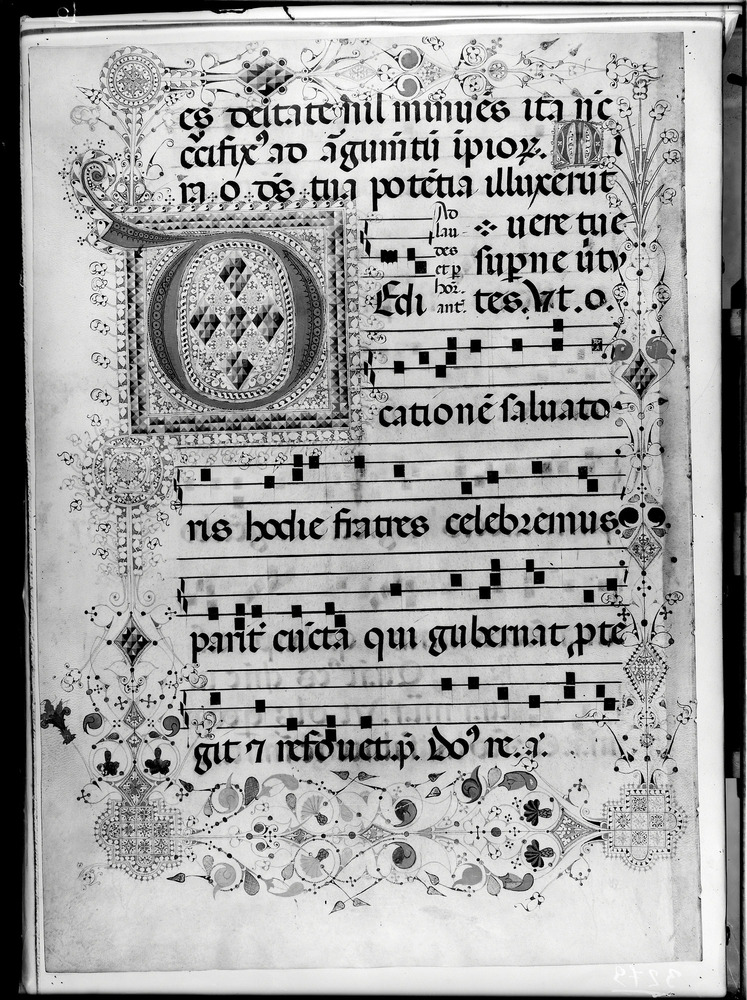 es deitate nil minues ita nc̄
c̄cifix⁹ ad āgunitū ipioꝝ. M i
m o ds̄ tua potētia illuxerūt
Ad
lau-
des
et p
hor.
ant.
uere tue
supne
D Edi
tes. Vt. o.
cationē saluato
ris hodie fratres celebremus
parit̄ cūcta qui gubernat ꝓte
git ⁊ refouet. p̄. Do⁹ re. a.
3279